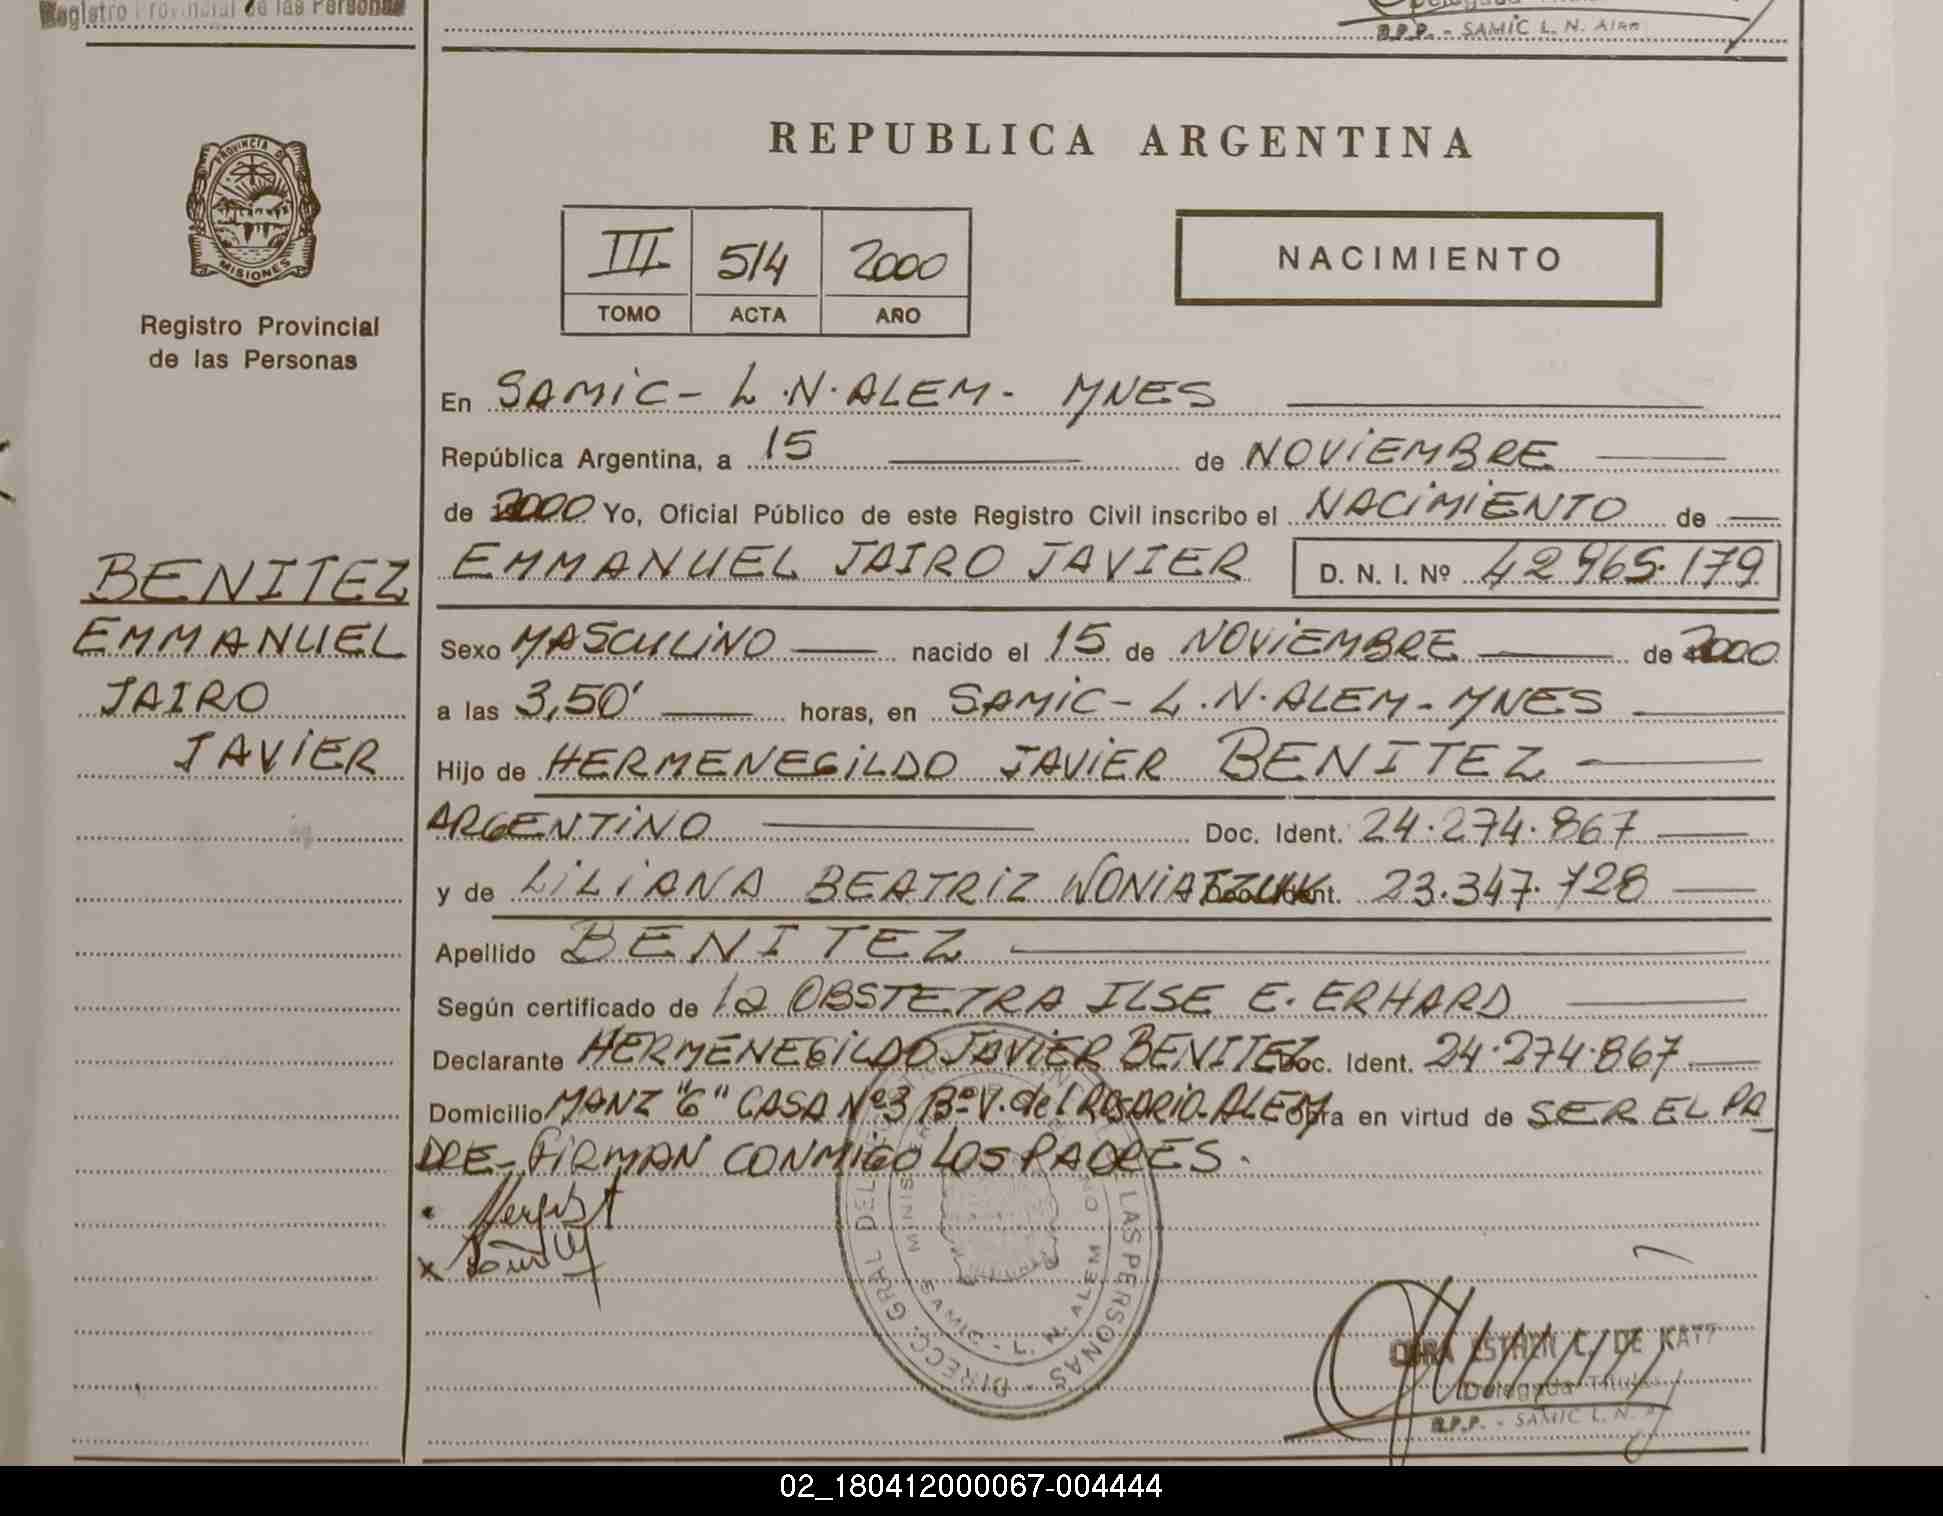 Registro Provincial de las Personas
R.P.P. - SAMIC L. N. Alem
PROVINCIA DE
MISIONES
Registro Provincial
de las Personas
BENITEZ
EMMANUEL
JAIRO
JAVIER
REPUBLICA ARGENTINA
III 514 2000
TOMO ACTA AÑO
NACIMIENTO
En SAMIC - L.N. ALEM - MNES
República Argentina, a 15 de NOVIEMBRE
de 2000 Yo, Oficial Público de este Registro Civil inscribo el NACIMIENTO de
EMMANUEL JAIRO JAVIER D. N. I. Nº 42965.179
Sexo MASCULINO nacido el 15 de NOVIEMBRE de 2000
a las 3,50' horas, en SAMIC - L.N. ALEM - MNES
Hijo de HERMENEGILDO JAVIER BENITEZ
ARGENTINO Doc. Ident. 24.274.867
y de LILIANA BEATRIZ WONIATZUK Doc. Ident. 23.347.728
Apellido BENITEZ
Según certificado de la OBSTETRA ILSE E. ERHARD
Declarante HERMENEGILDO JAVIER BENITEZ Doc. Ident. 24.274.867
Domicilio MANZ "G" CASA Nº3 Bº V. del ROSARIO - ALEM Obra en virtud de SER EL PA
DRE - FIRMAN CONMIGO LOS PADRES.
DIRECC. GRAL DEL LAS PERSONAS
SAMIC - L. N. ALEM
ESTHER C. DE KATZ
Delegada Titular
R.P.P. - SAMIC L. N.
02_180412000067-004444